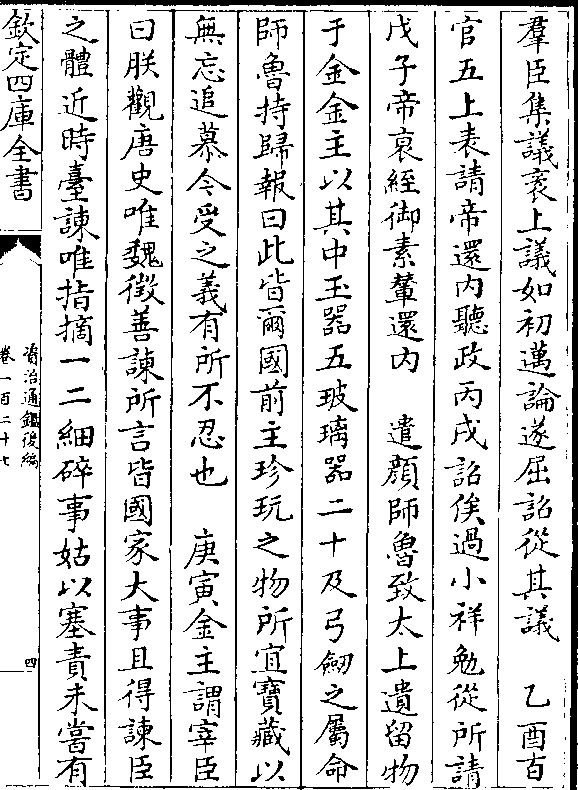 羣臣集議袤上議如初邁論遂屈詔從其議　乙酉百
官五上表請帝還内聽政丙戌詔俟過小祥勉從所請
戊子帝衰絰御素輦還内　遣顔師魯致太上遺留物
于金金主以其中玉器五玻璃器二十及弓劒之屬命
師魯持歸報曰此皆爾國前主珍玩之物所宜寶藏以
無忘追慕今受之義有所不忍也　庚寅金主謂宰臣
曰朕觀唐史唯魏徵善諫所言皆國家大事且得諫臣
之體近時臺諫唯指摘一二細碎事姑以塞責未嘗有
欽定四庫全書
資治通鑑後編
卷一百二十七
四